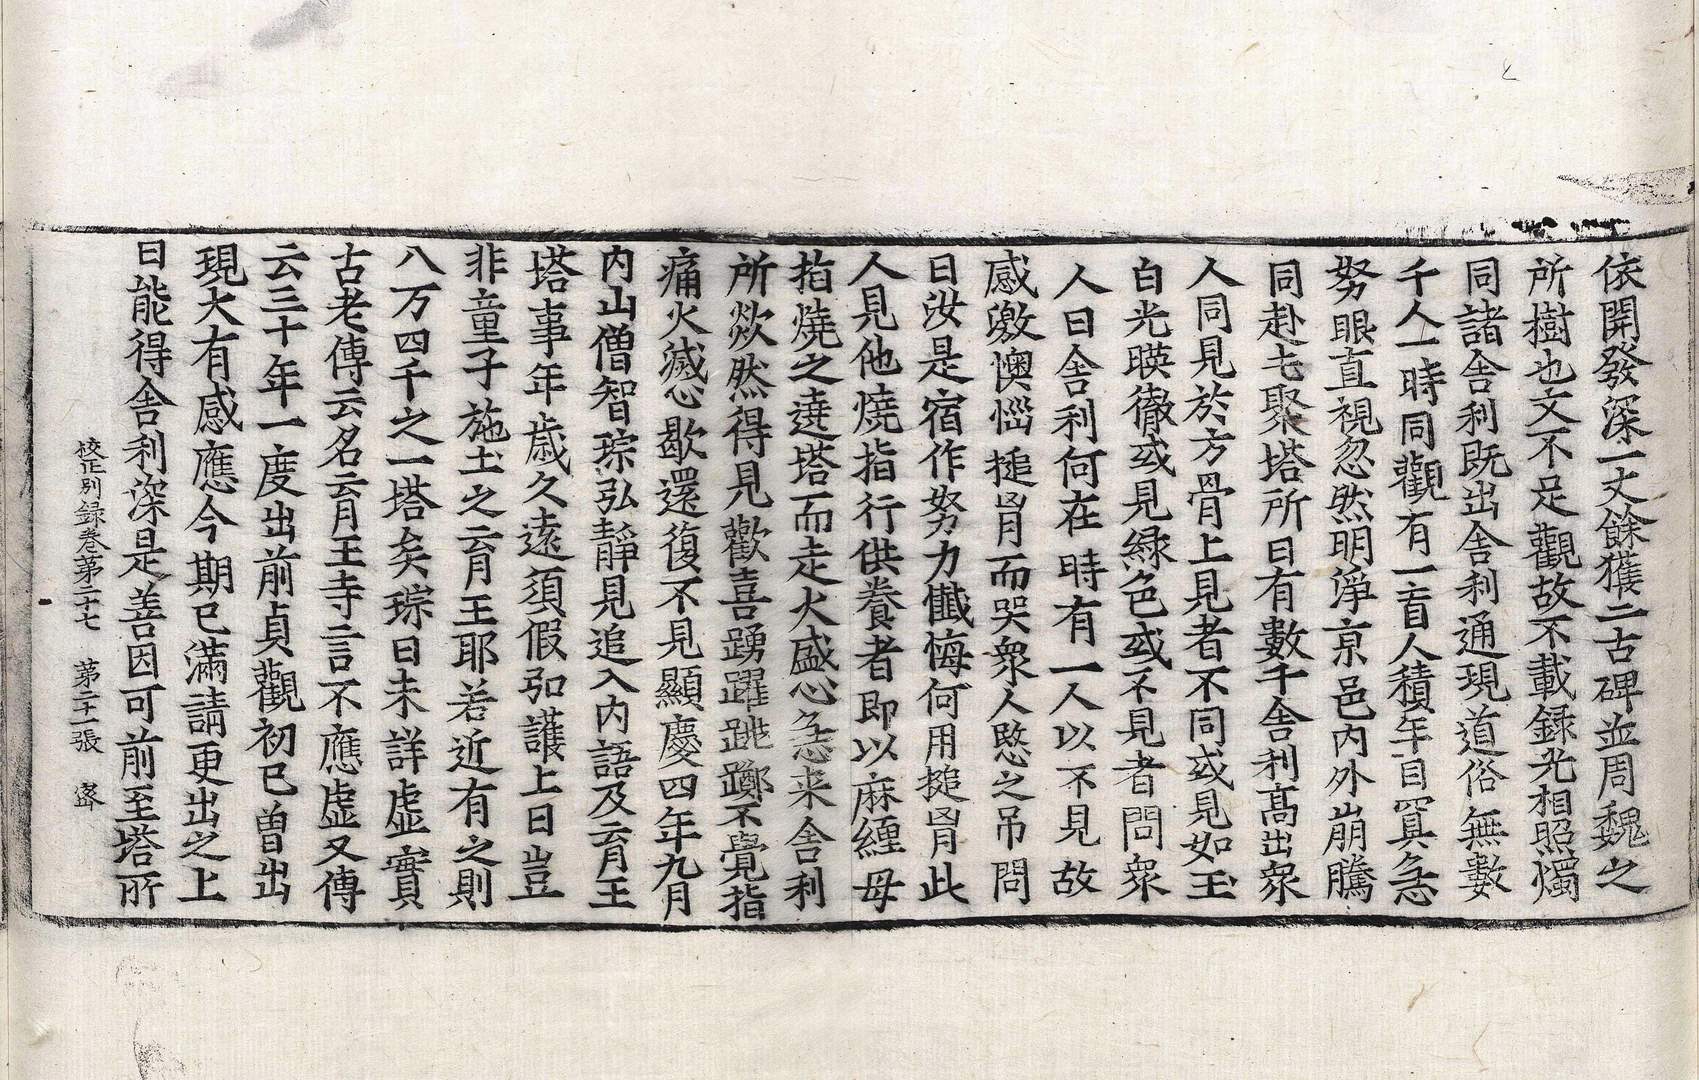 依開發深一丈餘獲二古碑並周魏之
所樹也文不足觀故不載録光相照燭
同諸舍利既出舍利通現道俗無數
千人一時同觀有一盲人積年目冥急
努眼直視忽然明淨京邑内外崩騰
同赴屯聚塔所日有數千舍利髙出衆
人同見於方骨上見者不同或見如玉
白光暎徹或見緑色或不見者問衆
人曰舍利何在時有一人以不見故
感激懊惱搥胷而哭衆人愍之吊問
曰汝是宿作努力懺悔何用搥胷此
人見他燒指行供養者即以麻纏母
指燒之遶塔而走火盛心急来舍利
所欻然得見歡喜踴躍跳躑不覺指
痛火滅心歇還復不見顯慶四年九月
内山僧智琮弘靜見追入内語及育王
塔事年歳久遠須假弘護上曰豈
非童子施土之育王耶若近有之則
八万四千之一塔矣琮曰未詳虚實
古老傳云名育王寺言不應虚又傳
云三十年一度出前貞觀初已曽出
現大有感應今期已滿請更出之上
曰能得舍利深是善因可前至塔所
校正別録卷第二十七　第二十一張　密